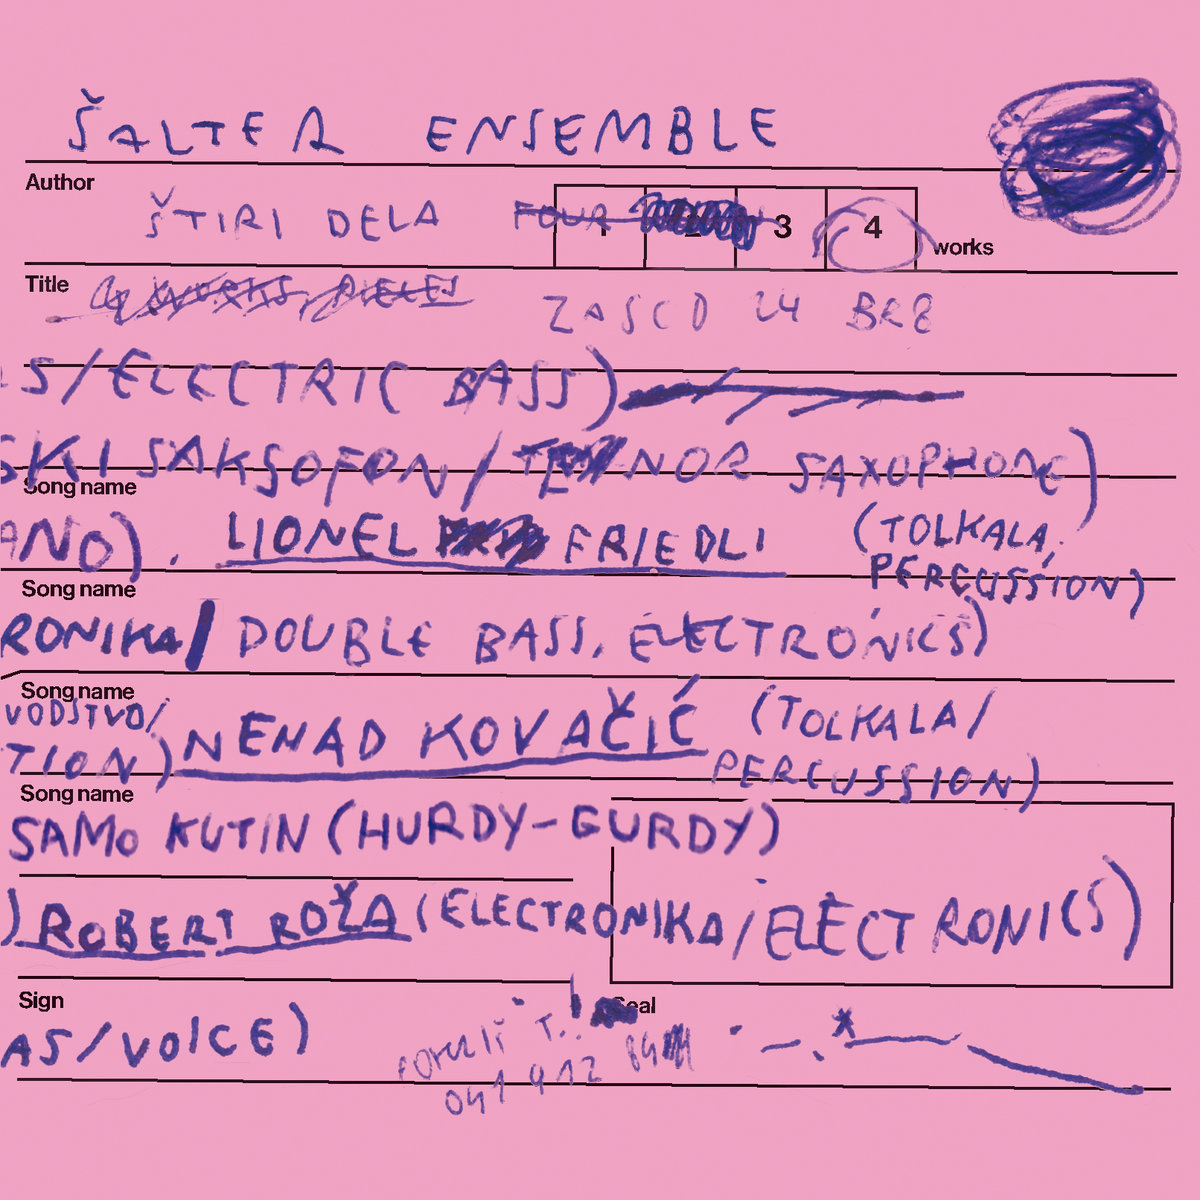 ŠALTER ENSEMBLE
Author
ŠTIRI DELA FOUR 3 4 works
Title
ZASCD 24 BRB
S/ELECTRIC BASS)
SKI SAKSOFON/TENOR SAXOPHONE)
Song name
ANO). LIONEL FRIEDLI (TOLKALA,
PERCUSSION)
Song name
RONIKA/DOUBLE BASS, ELECTRONICS)
Song name
VODSTVO/
TION) NENAD KOVAČIĆ (TOLKALA/
PERCUSSION)
Song name
SAMO KUTIN (HURDY-GURDY)
) ROBERT ROŽA (ELECTRONIKA/ELECTRONICS)
Sign
AS/VOICE)
T.
041 912